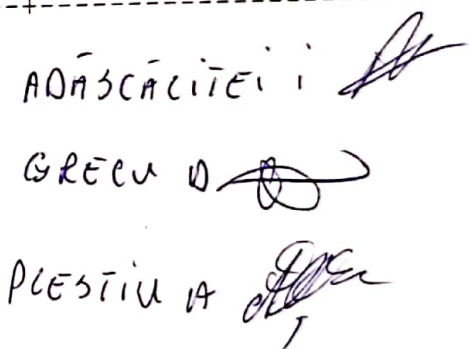 ADĂSCĂLIȚEI I
GRECU D
PLESTIU A